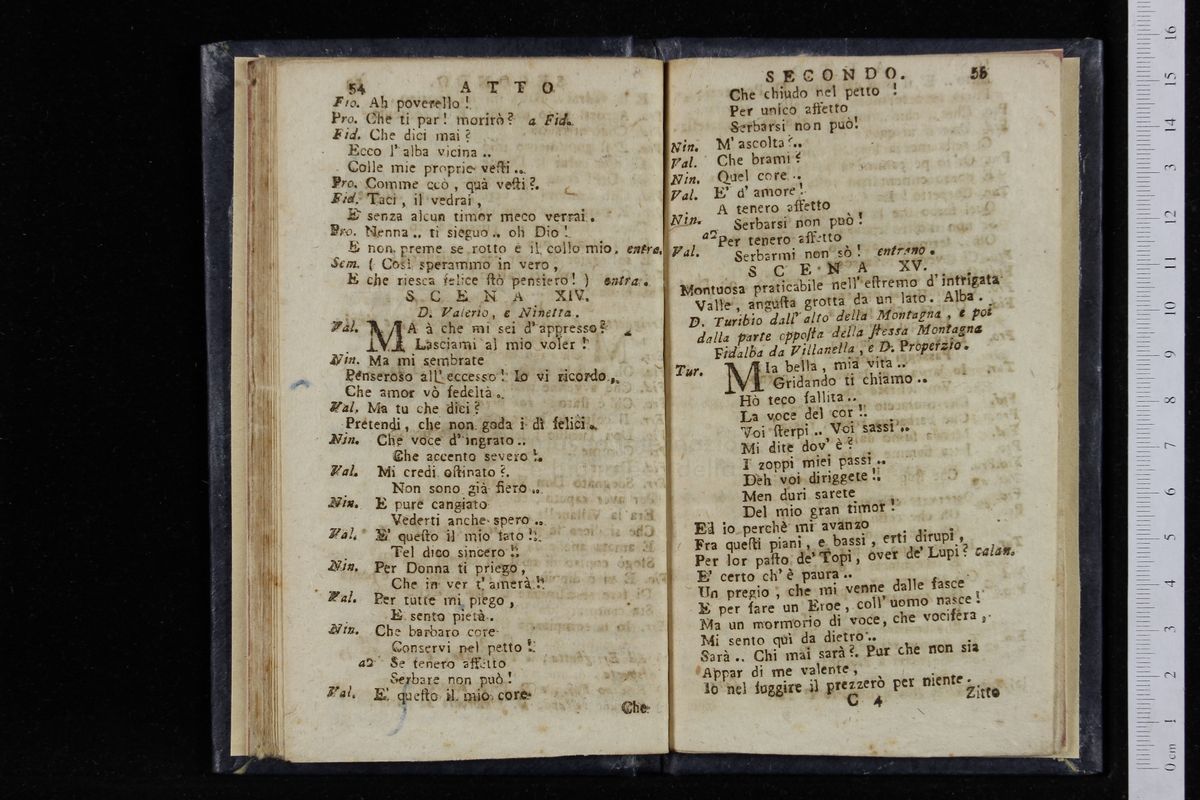 54 ATTO
Fio. Ah poverello !
Pro. Che ti par! morirò? a Fid.
Fid. Che dici mai?
Ecco l' alba vicina ..
Colle mie proprie vesti ..
Pro. Comme ccò, quà vesti?.
Fid. Taci, il vedrai,
E senza alcun timor meco verrai.
Pro. Nenna .. ti sieguo .. oh Dio!
E non preme se rotto è il collo mio. entra.
Sem. ( Così sperammo in vero,
E che riesca felice stò pensiero! ) entra.
SCENA XIV.
D. Valerio, e Ninetta.
Val. MA à che mi sei d'appresso?
Lasciami al mio voler!
Nin. Ma mi sembrate
Penseroso all' eccesso! Io vi ricordo,
Che amor vò fedeltà.
Val. Ma tu che dici?
Pretendi, che non goda i dì felici.
Nin. Che voce d'ingrato ..
Che accento severo!.
Val. Mi credi ostinato?.
Non sono già fiero ..
Nin. E pure cangiato
Vederti anche spero ..
Val. E' questo il mio fato!.
Tel dico sincero!.
Nin. Per Donna ti priego,
Che in ver t'amerà!.
Val. Per tutte mi piego,
E sento pietà.
Nin. Che barbaro core
Conservi nel petto!
a2 Se tenero affetto
Serbare non può!
Val. E' questo il mio core
Che
SECONDO. 55
Che chiudo nel petto !
Per unico affetto
Serbarsi non può!
Nin. M'ascolta?..
Val. Che brami?
Nin. Quel core ..
Val. E' d'amore!
A tenero affetto
Nin. Serbarsi non può!
a2 Per tenero affetto
Val. Serbarmi non sò! entrano.
SCENA XV.
Montuosa praticabile nell'estremo d'intrigata
Valle, angusta grotta da un lato. Alba.
D. Turibio dall' alto della Montagna, e poi
dalla parte opposta della stessa Montagna
Fidalba da Villanella, e D. Properzio.
Tur. MIa bella, mia vita ..
Gridando ti chiamo ..
Hò teco fallita ..
La voce del cor!.
Voi sterpi .. Voi sassi ..
Mi dite dov' è?
I zoppi miei passi ..
Deh voi diriggete!.
Men duri sarete
Del mio gran timor!
Ed io perchè mi avanzo
Fra questi piani, e bassi, erti dirupi,
Per lor pasto de' Topi, over de' Lupi? calan.
E' certo ch' è paura ..
Un pregio, che mi venne dalle fasce
E per fare un Eroe, coll' uomo nasce!
Ma un mormorio di voce, che vocifera,
Mi sento quì da dietro ..
Sarà .. Chi mai sarà?. Pur che non sia
Appar di me valente,
Io nel fuggire il prezzerò per niente.
C 4 Zitto